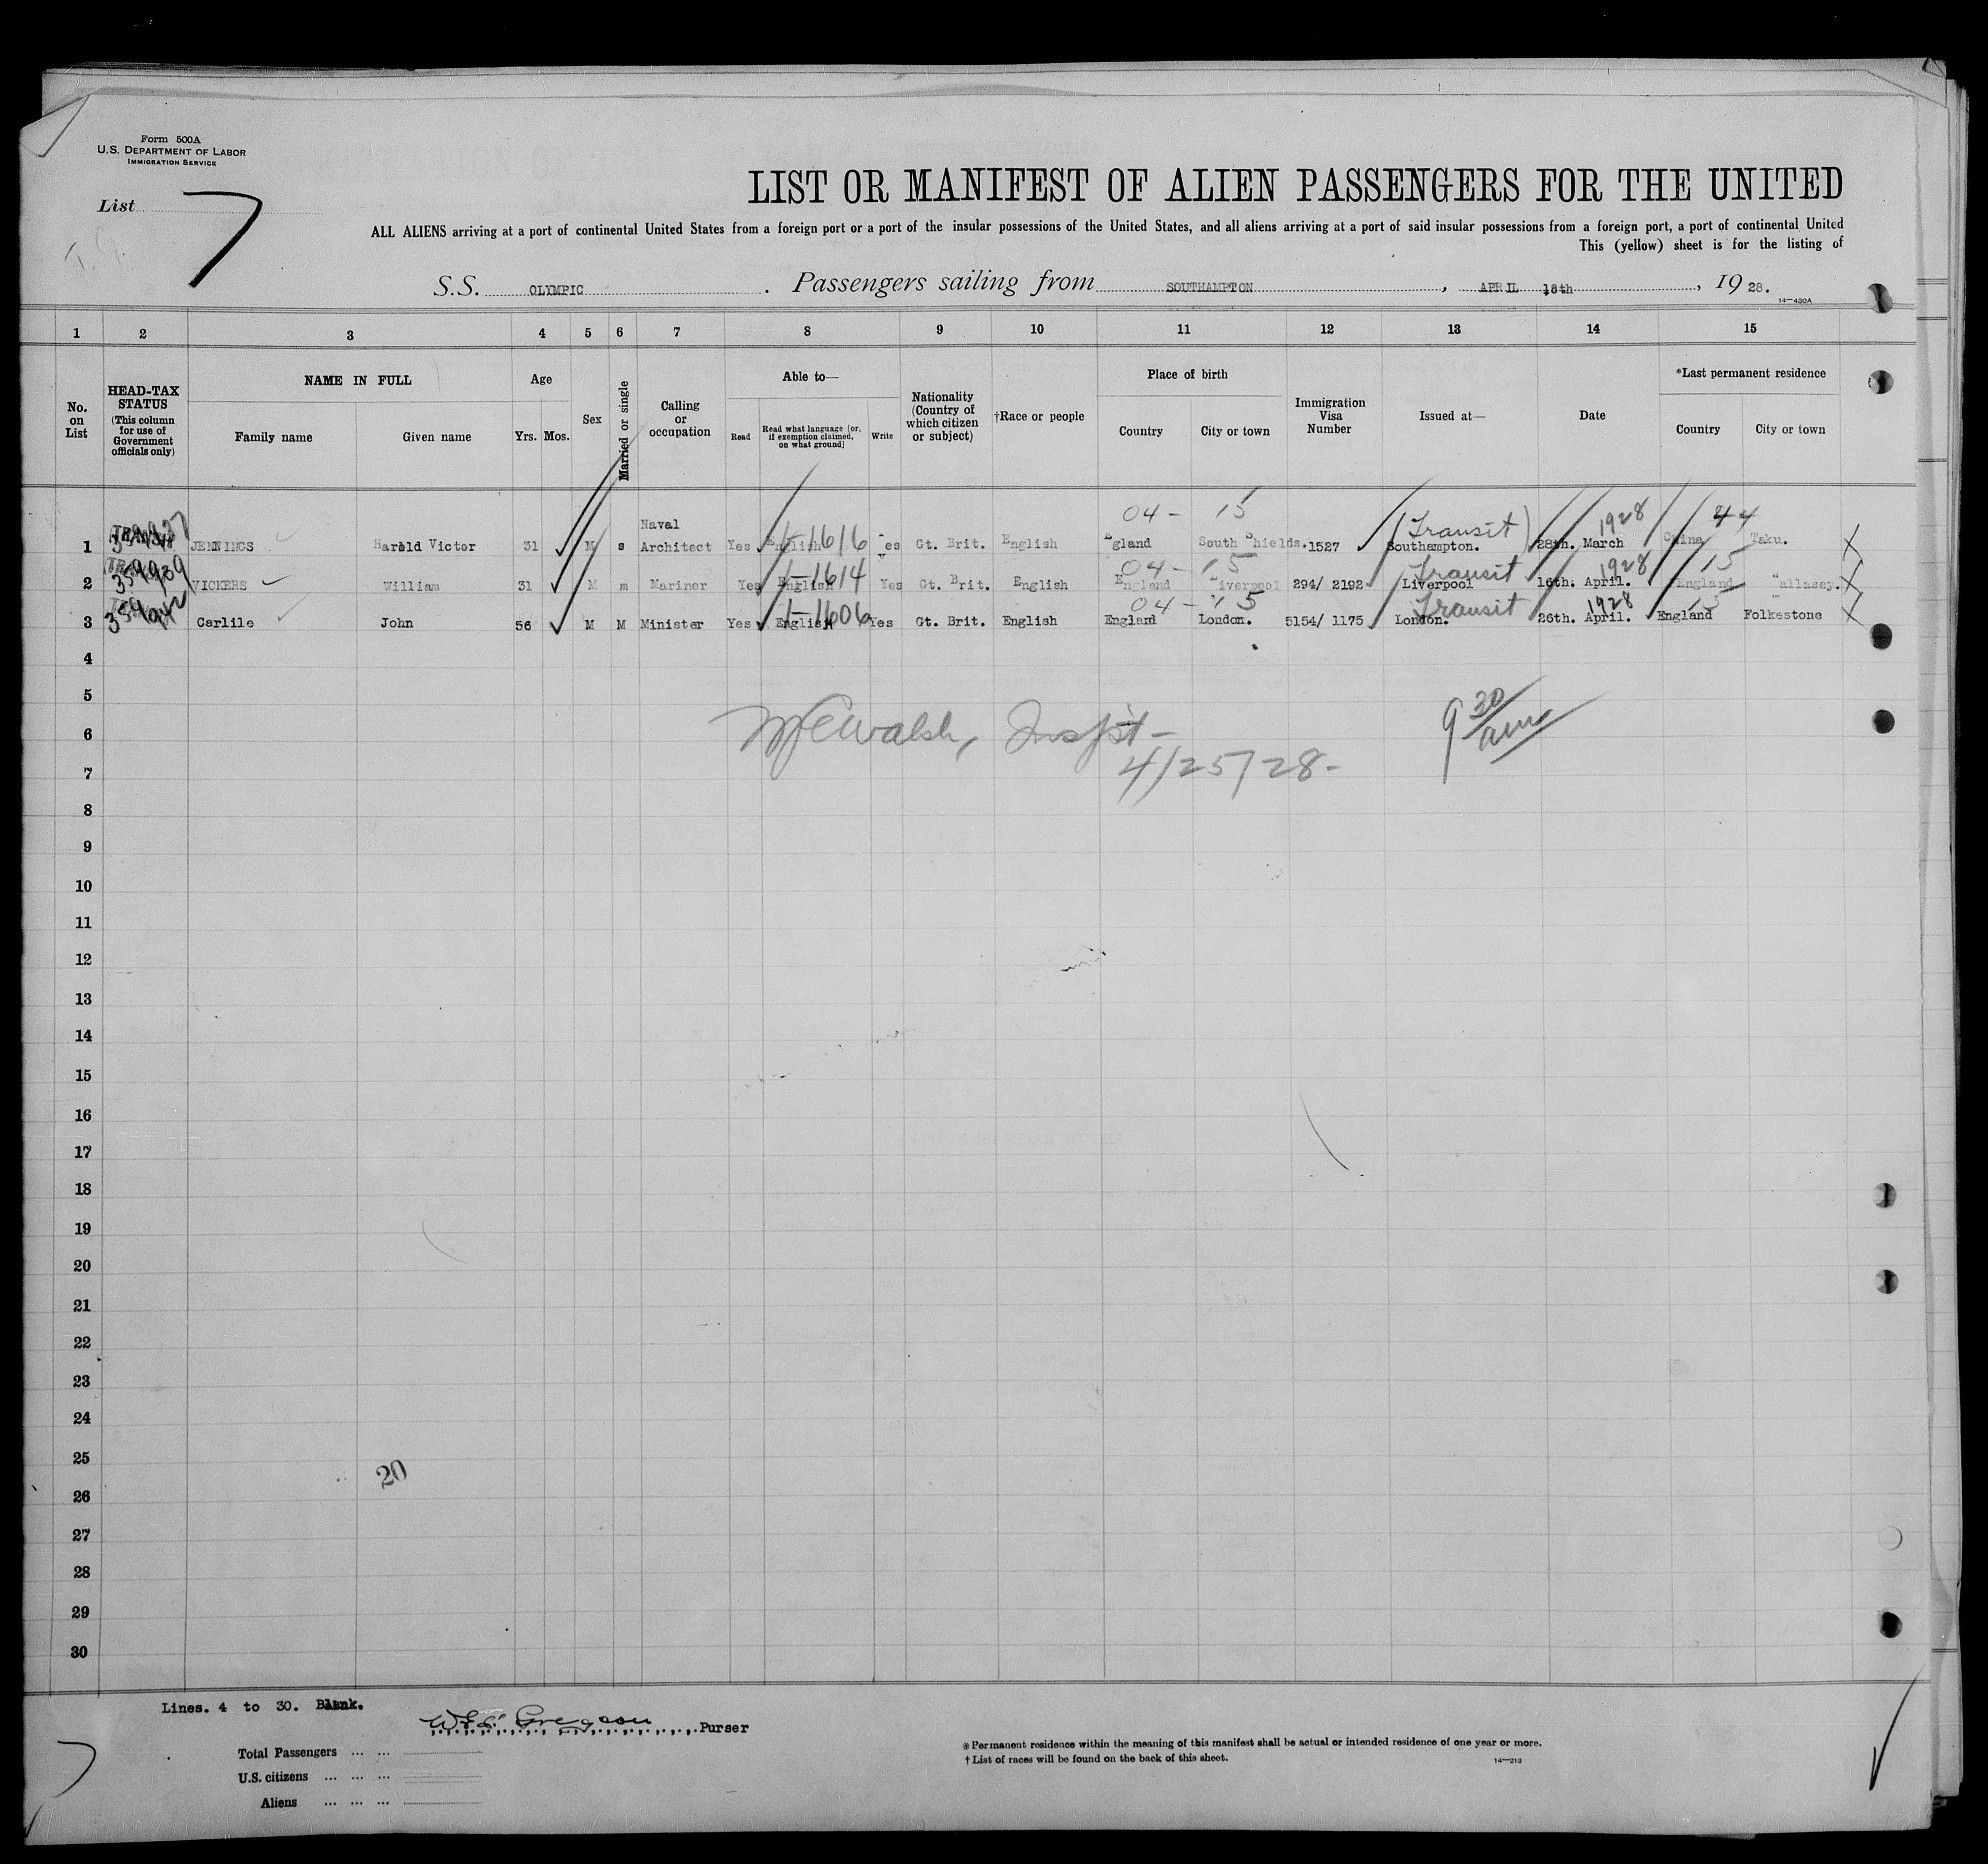 Form 500A
U.S. DEPARTMENT OF LABOR
IMMIGRATION SERVICE
List 7
LIST OR MANIFEST OF ALIEN PASSENGERS FOR THE UNITED
ALL ALIENS arriving at a port of continental United States from a foreign port or a port of the insular possessions of the United States, and all aliens arriving at a port of said insular possessions from a foreign port, a port of continental United
This (yellow) sheet is for the listing of
S.S. OLYMPIC . Passengers sailing from SOUTHAMPTON , APRIL 18th , 1928.
14—430A
1 2 3 4 5 6 7 8 9 10 11 12 13 14 15
No. on List
HEAD-TAX STATUS (This column for use of Government officials only)
NAME IN FULL
Family name Given name
Age
Yrs. Mos.
Sex
Married or single
Calling or occupation
Able to—
Read
Read what language [or, if exemption claimed, on what ground]
Write
Nationality (Country of which citizen or subject)
†Race or people
Place of birth
Country City or town
Immigration Visa Number
Issued at—
Date
*Last permanent residence
Country City or town
04 - 15 (Transit) 1928 44
1 JENNINGS Harold Victor 31 M s Naval Architect Yes English 1-1616 es Gt. Brit. English gland South Shields. 1527 Southampton. 28th. March China Taku.
04 - 15 Transit 1928 15
2 VICKERS William 31 M m Mariner Yes English 1-1614 Yes Gt. Brit. English England iverpool 294/ 2192 Liverpool 16th. April. England allasey.
04 - 15 Transit 1928 15
3 Carlile John 56 M M Minister Yes English 1-1606 Yes Gt. Brit. English England London. 5154/ 1175 London. 26th. April. England Folkestone
4
5
6
7
Walsh, Insp't - 9 30 am
4/25/28-
8
9
10
11
12
13
14
15
16
17
18
19
20
21
22
23
24
25
20
26
27
28
29
30
Lines. 4 to 30. Blank.
Gregson Purser
Total Passengers ... ...
U.S. citizens ... ... ...
Aliens ... ... ...
*Permanent residence within the meaning of this manifest shall be actual or intended residence of one year or more.
†List of races will be found on the back of this sheet.
14—213